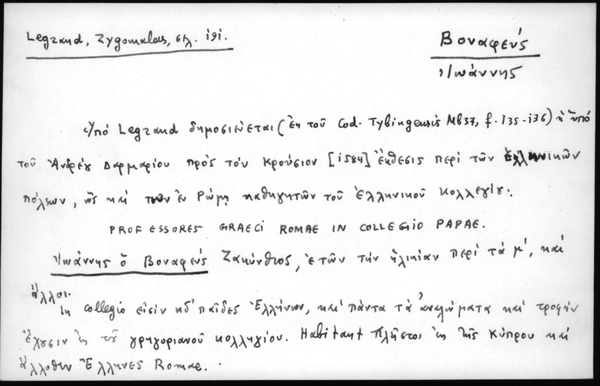 Legrand, Zygomalas, σελ. 191.
Βοναφεύς
Ἰωάννης
Ὑπό Legrand δημοσιεύεται (ἐκ τοῦ Cod. Tybingensis Mb37, f. 135-136) ἡ ὑπό
τοῦ Ἀνδρέου Δαρμαρίου πρός τόν Κρούσιον [1584] ἔκθεσις περί τῶν ἑλληνικῶν
πόλεων, ὡς καί τῶν ἐν Ρώμῃ καθηγητῶν τοῦ Ἑλληνικοῦ Κολλεγίου:
PROFESSORES GRAECI ROMAE IN COLLEGIO PAPAE.
Ἰωάννης ὁ Βοναφεύς Ζακύνθιος, ἐτῶν τήν ἡλικίαν περί τά μ', καί
ἄλλοι.
In collegio εἰσίν κδ' παῖδες Ἑλλήνων, καί πάντα τά ἀναλώματα καί τροφήν
ἔχουσιν ἐκ τοῦ γρηγοριανοῦ κολληγίου. Habitant πλεῖστοι ἐκ τῆς Κύπρου καί
ἄλλοθεν Ἕλληνες Romae.